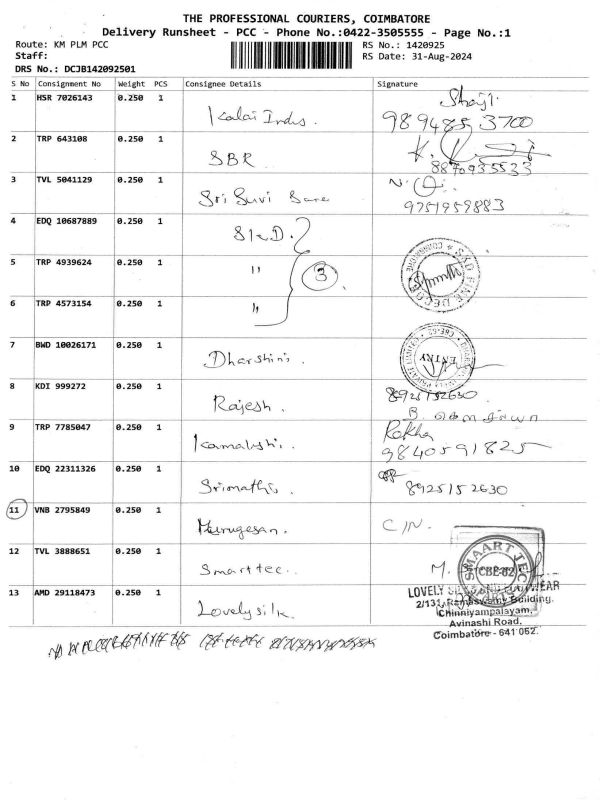 THE PROFESSIONAL COURIERS, COIMBATORE
Delivery Runsheet - PCC - Phone No.:0422-3505555 - Page No.:1
Route: KM PLM PCC
RS No.: 1420925
Staff:
RS Date: 31-Aug-2024
DRS No.: DCJB142092501
S No Consignment No Weight PCS Consignee Details Signature
1 HSR 7026143 0.250 1 Kalai Inds.
9894853700
2 TRP 643108 0.250 1 SBR
8870935533
3 TVL 5041129 0.250 1 Sri Suvi
9751959883
4 EDQ 10687889 0.250 1
5 TRP 4939624 0.250 1 " 3
6 TRP 4573154 0.250 1 "
SKD FINE DECOR
COIMBATORE
7 BWD 10026171 0.250 1 Dharshini.
ENTRY
8 KDI 999272 0.250 1 Rajesh.
8925152630
9 TRP 7785047 0.250 1 Kamakshi.
Rekha
9840591825
10 EDQ 22311326 0.250 1 Srimathi.
8925152630
11 VNB 2795849 0.250 1 Murugesan. C/N.
12 TVL 3888651 0.250 1 Smart tec.
SMAART TEC
CBE-62
13 AMD 29118473 0.250 1 Lovely silk.
LOVELY
2/131, Ramaswamy Building,
Chinniyampalayam,
Avinashi Road,
Coimbatore - 641 062.